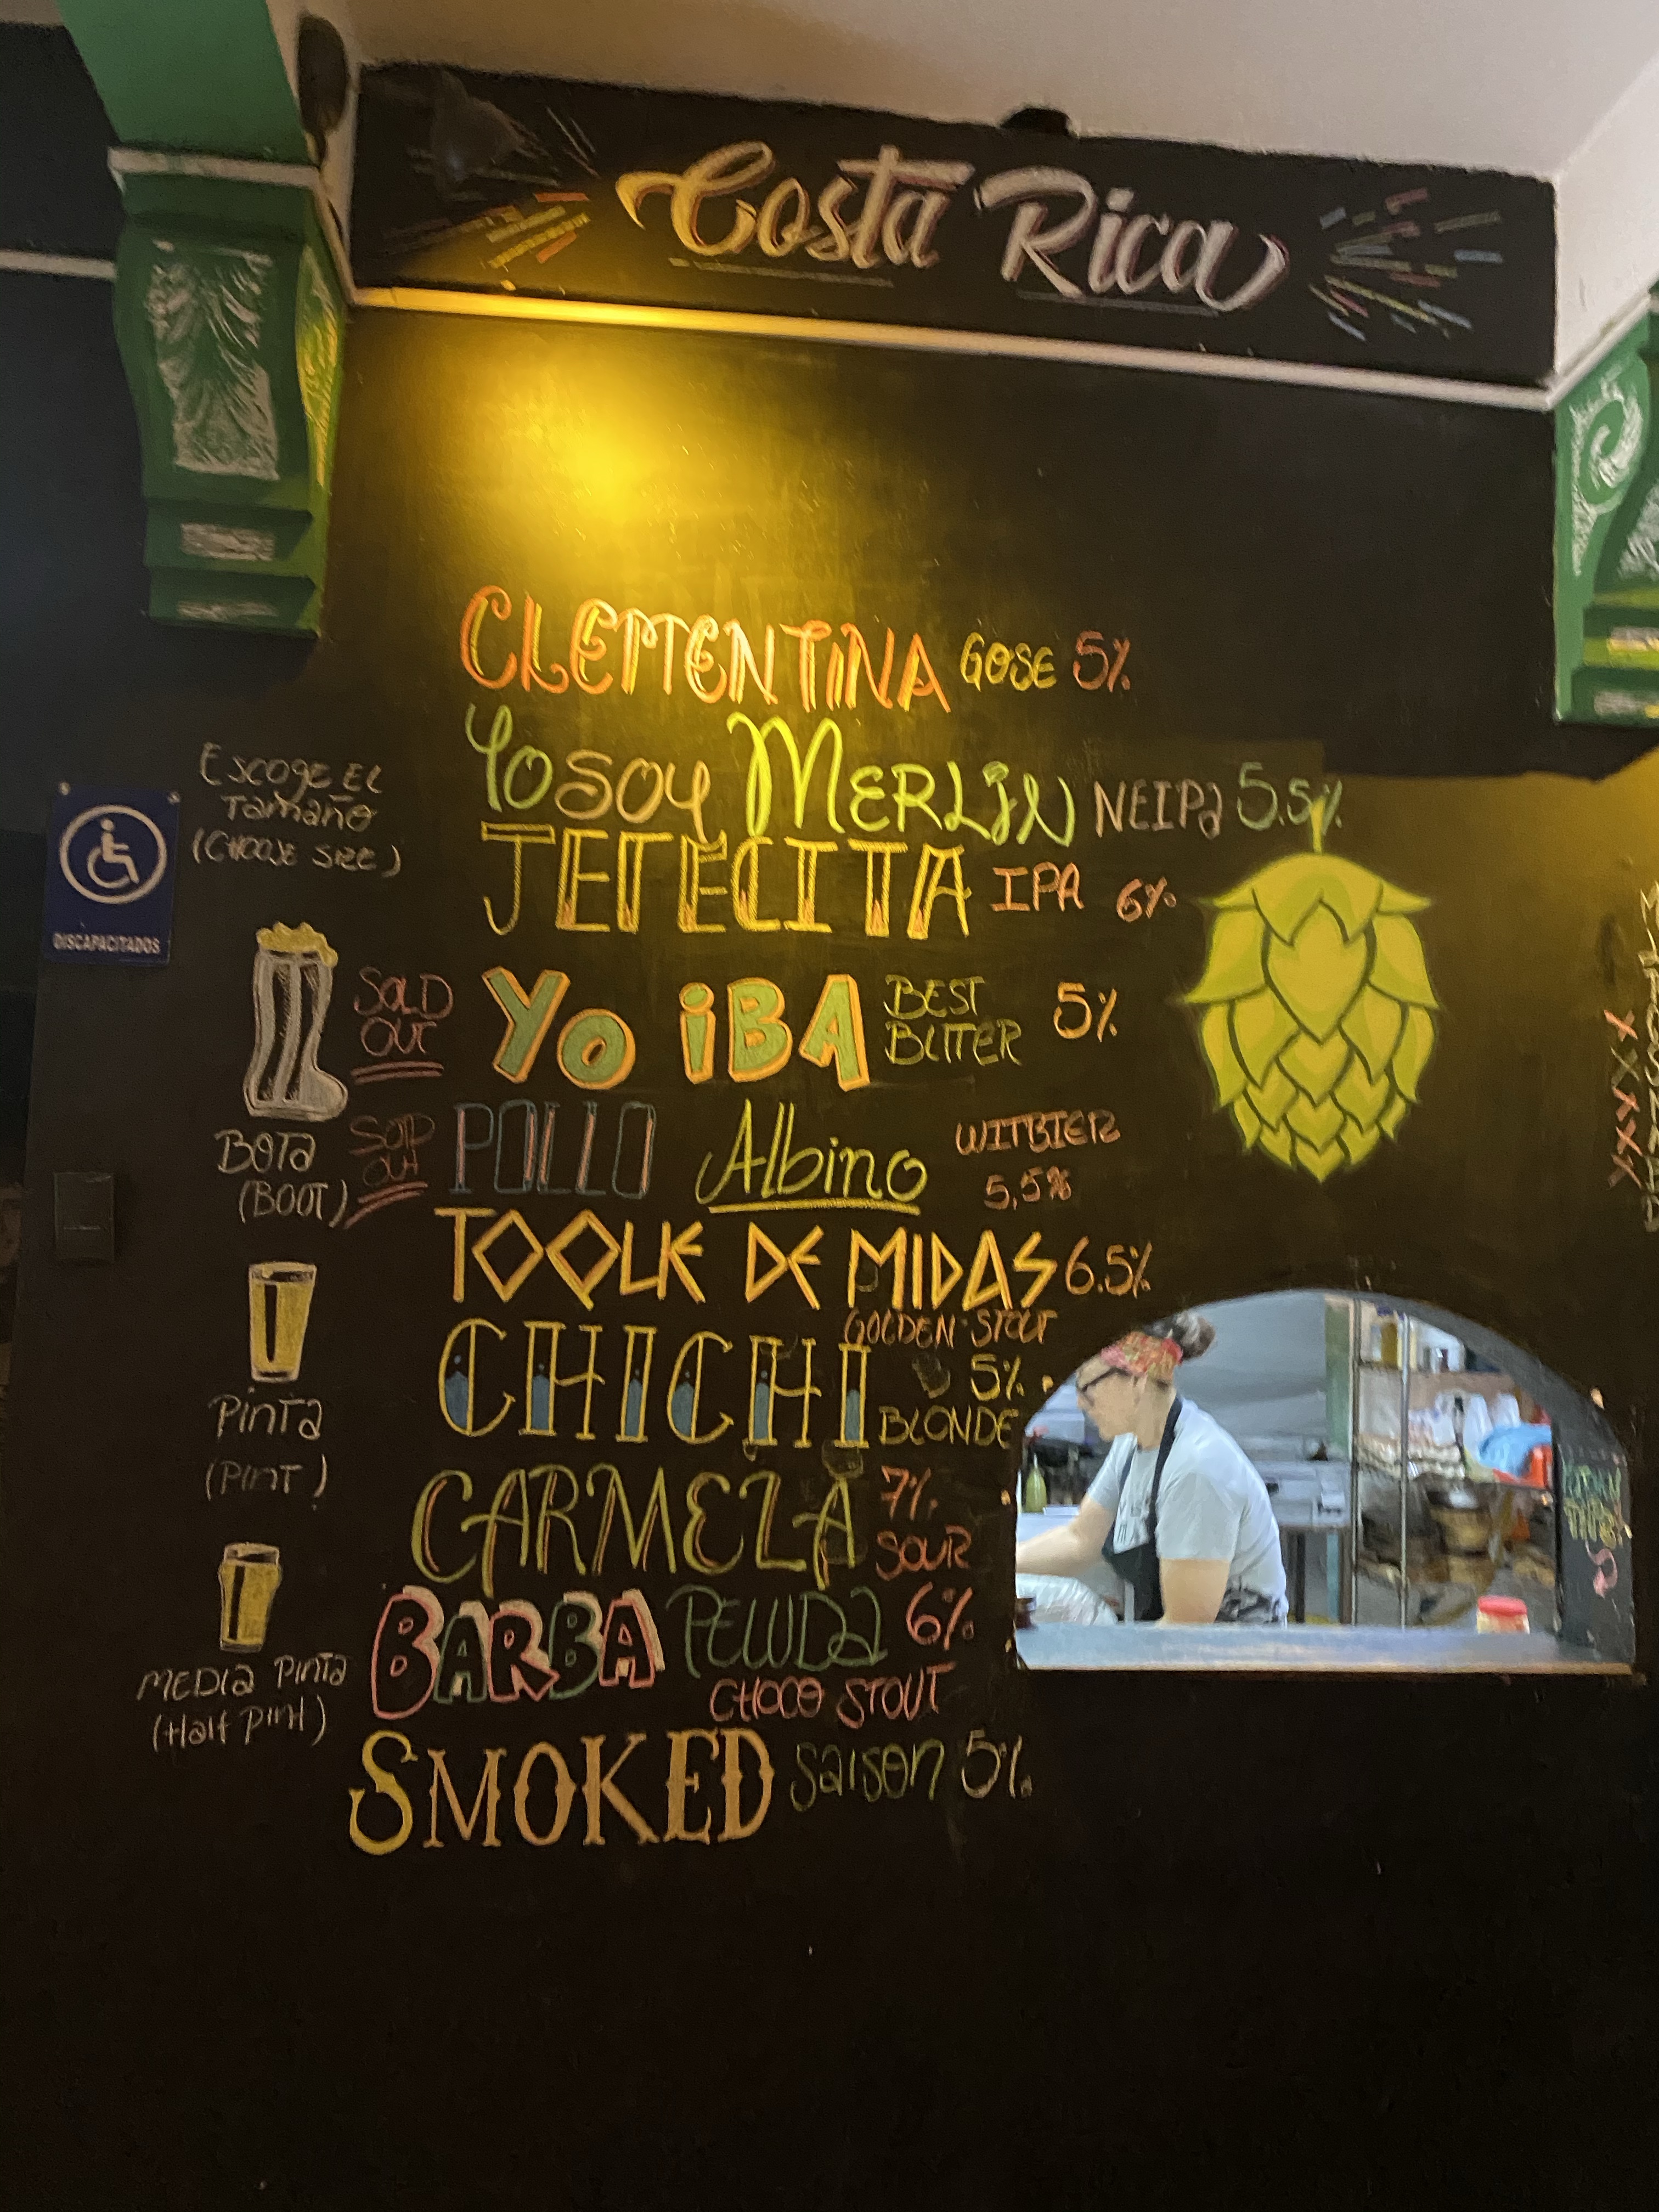 Costa Rica
CLEMENTINA GOSE 5%
Yo SOY MERLIN NEIPA 5.5%
JETECITA IPA 6%
SOLD OUT Yo iBA BEST BITTER 5%
SOLD OUT POLLO Albino WITBIER 5,5%
TOQUE DE MIDAS 6.5%
GOLDEN STOUT
CHICHI 5% BLONDE
CARMELA 7% SOUR
BARBA PELUDA 6%
CHOCO STOUT
SMOKED Saison 5%
ESCOGE EL
Tamaño
(CHOOSE SIZE)
DISCAPACITADOS
BOTa
(BOOT)
PinTa
(PinT)
MEDIa PinTa
(Half Pint)